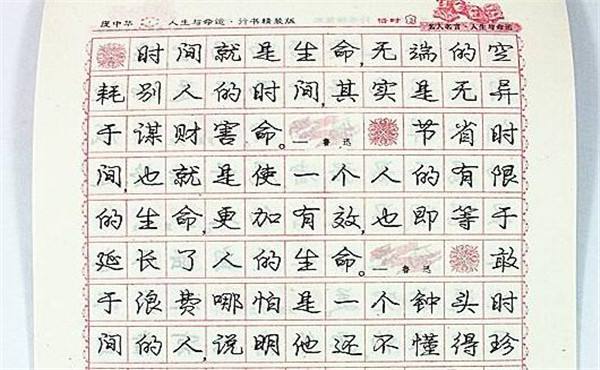 庞中华 人生与命运·行书精装版 惜时
名人名言·人生与命运
时间就是生命,无端的空
耗别人的时间,其实是无异
于谋财害命。——鲁迅 节省时
间,也就是使一个人的有限
的生命,更加有效,也即等于
延长了人的生命。——鲁迅 敢
于浪费哪怕是一个钟头时
间的人,说明他还不懂得珍